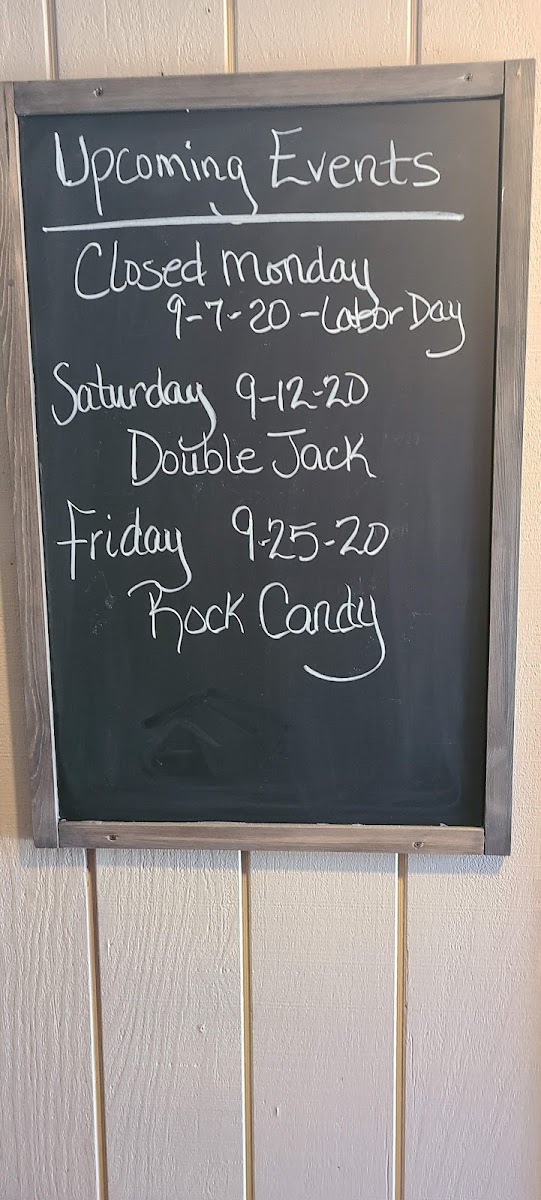 Upcoming Events
Closed Monday
9-7-20 - Labor Day
Saturday 9-12-20
Double Jack
Friday 9-25-20
Rock Candy